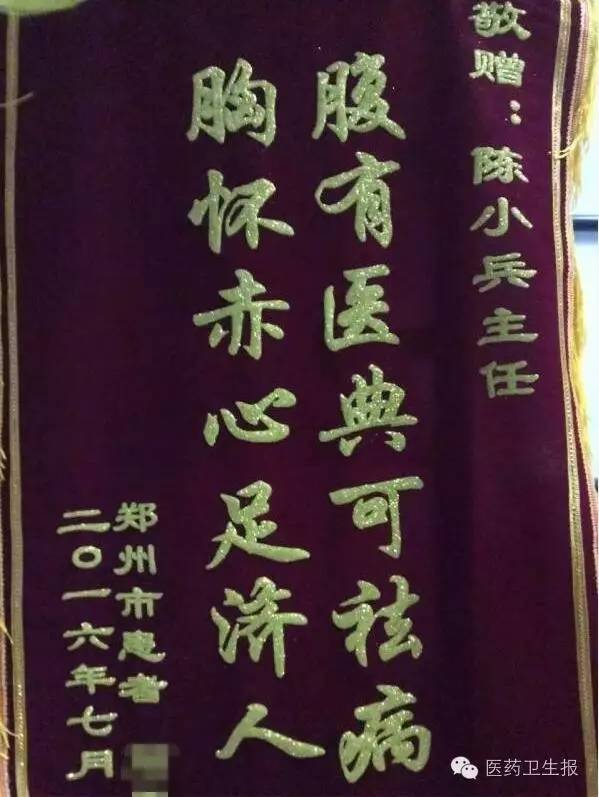 敬赠：陈小兵主任
腹有医典可祛病
胸怀赤心足济人
郑州市患者
二〇一六年七月
医药卫生报